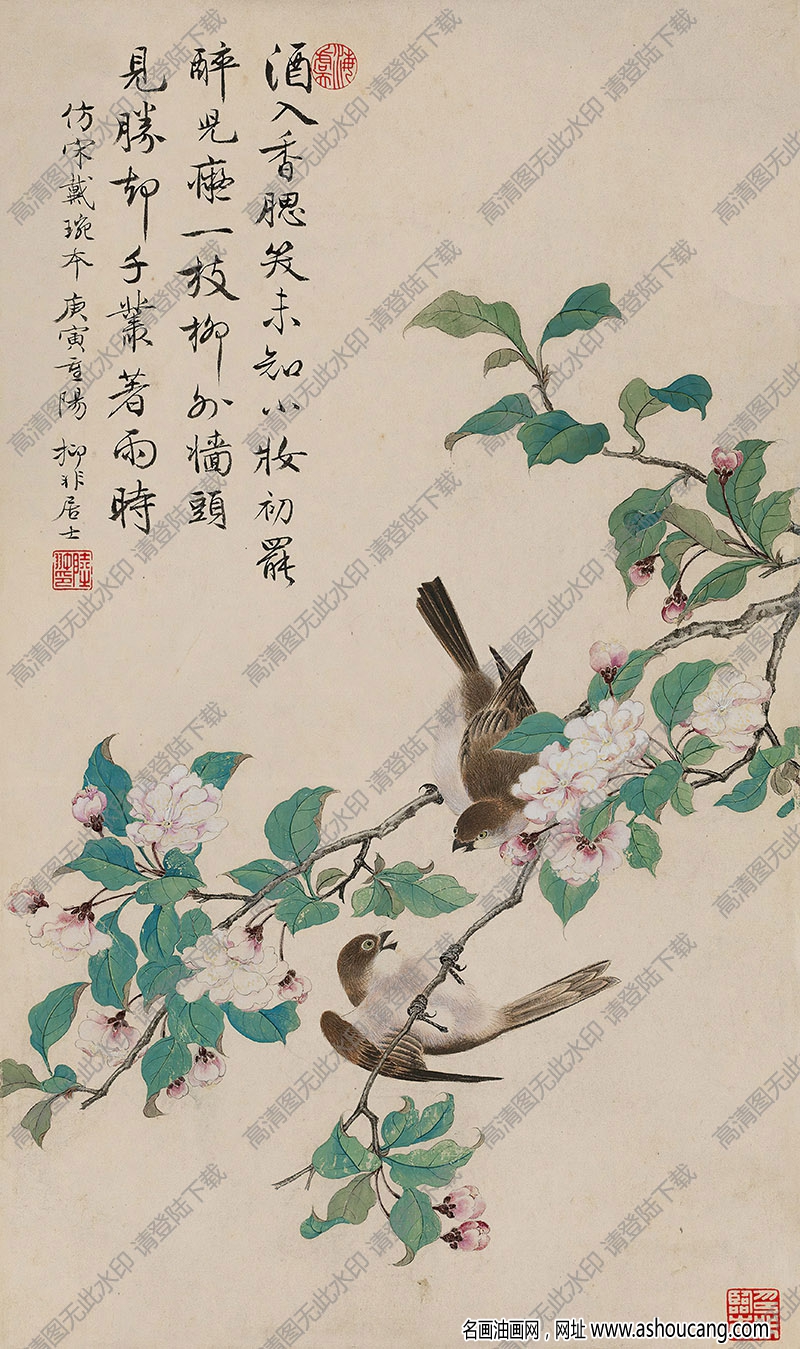 酒入香腮笑未知小妝初罷
醉兒癡一枝柳外牆頭
見勝却千叢著雨時
仿宋戴琬本 庚寅重陽 抑非居士
高清图无此水印 请登陆下载
名画油画网，网址 www.ashoucang.com